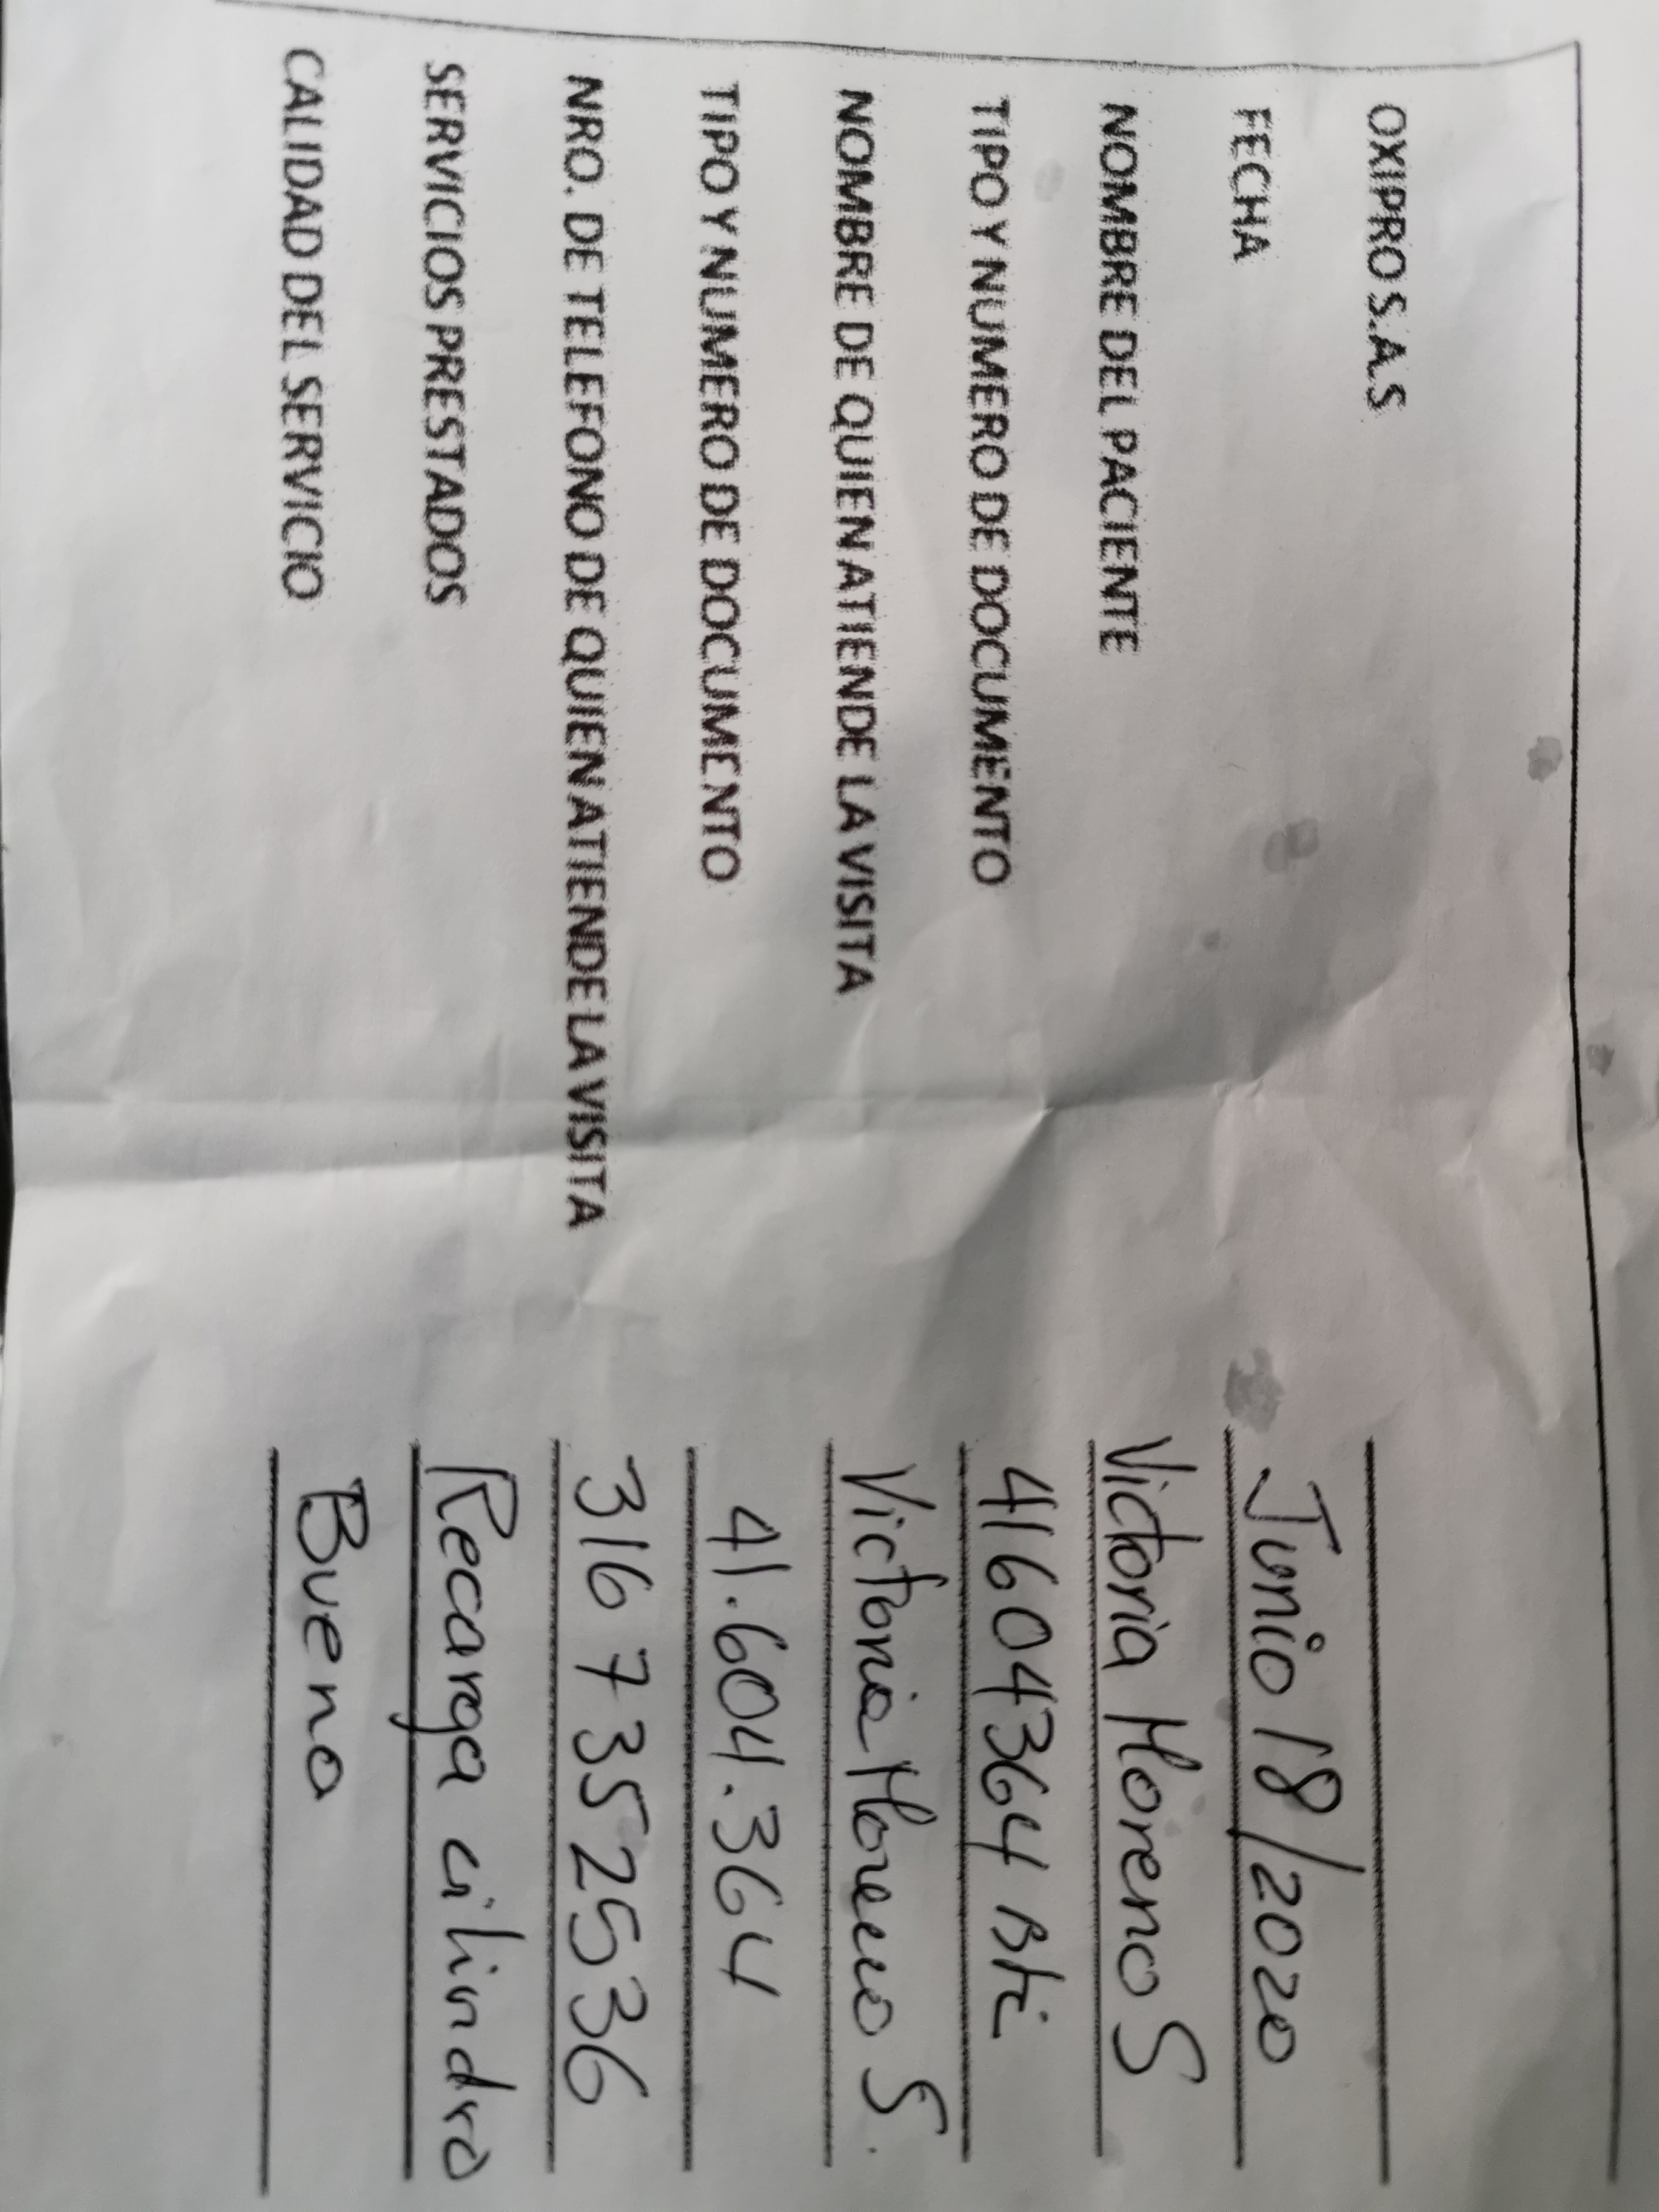 OXIPRO S.A.S
FECHA Junio 18/2020
NOMBRE DEL PACIENTE Victoria Moreno S
TIPO Y NUMERO DE DOCUMENTO 41604364 Bta
NOMBRE DE QUIEN ATIENDE LA VISITA Victoria Moreno S.
TIPO Y NUMERO DE DOCUMENTO 41.604.364
NRO. DE TELEFONO DE QUIEN ATIENDE LA VISITA 316 7352536
SERVICIOS PRESTADOS Recarga cilindro
CALIDAD DEL SERVICIO Bueno